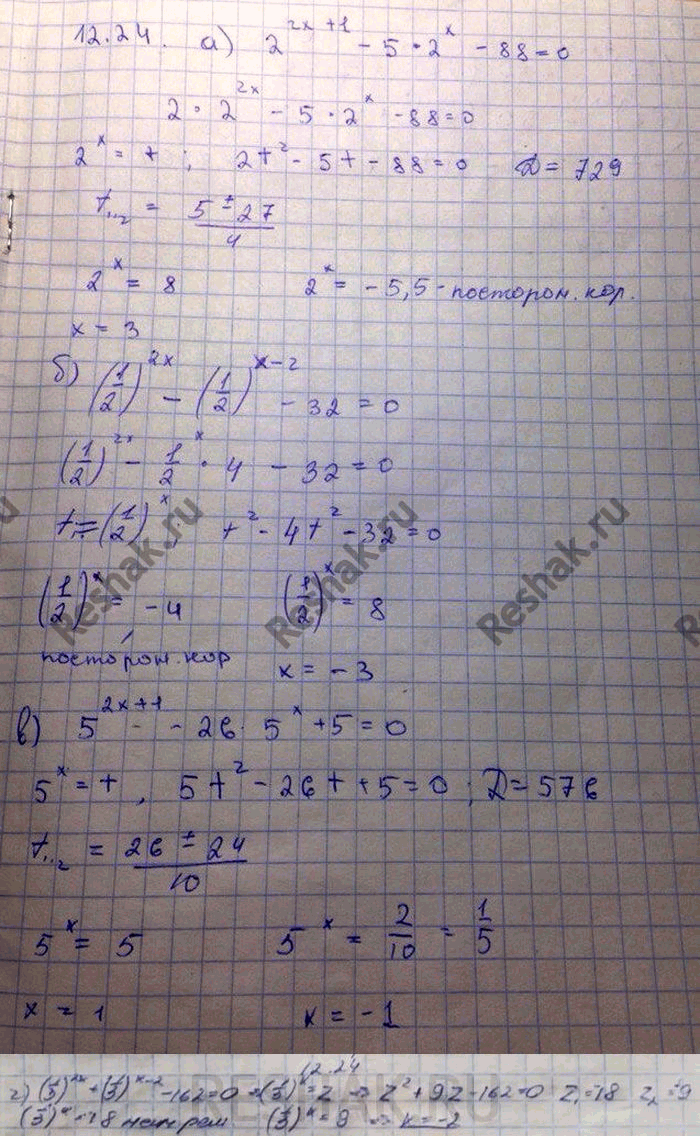 12.24. а) 2^{2x+1} - 5·2^x - 88 = 0
2·2^{2x} - 5·2^x - 88 = 0
2^x = t ; 2t² - 5t - 88 = 0 D = 729
t₁,₂ = (5 ± 27)/4
2^x = 8 2^x = -5,5 - посторон. кор.
x = 3
б) (1/2)^{2x} - (1/2)^{x-2} - 32 = 0
(1/2)^{2x} - 1/2^x · 4 - 32 = 0
t = (1/2)^x ; t² - 4t² - 32 = 0
(1/2)^x = -4 (1/2)^x = 8
посторон. кор x = -3
в) 5^{2x+1} - 26·5^x + 5 = 0
5^x = t , 5t² - 26t + 5 = 0 ; D = 576
t₁,₂ = (26 ± 24)/10
5^x = 5 5^x = 2/10 = 1/5
x = 1 x = -1
12.24
г) (1/3)^{2x} + (1/3)^{x-2} - 162 = 0 ⇒ (1/3)^x = z ⇒ z² + 9z - 162 = 0 z₁ = -18 z₂ = 9
(1/3)^x = -18 нет реш (1/3)^x = 9 ⇒ x = -2
Reshak.ru
Reshak.ru
Reshak.ru
RESHAK.RU